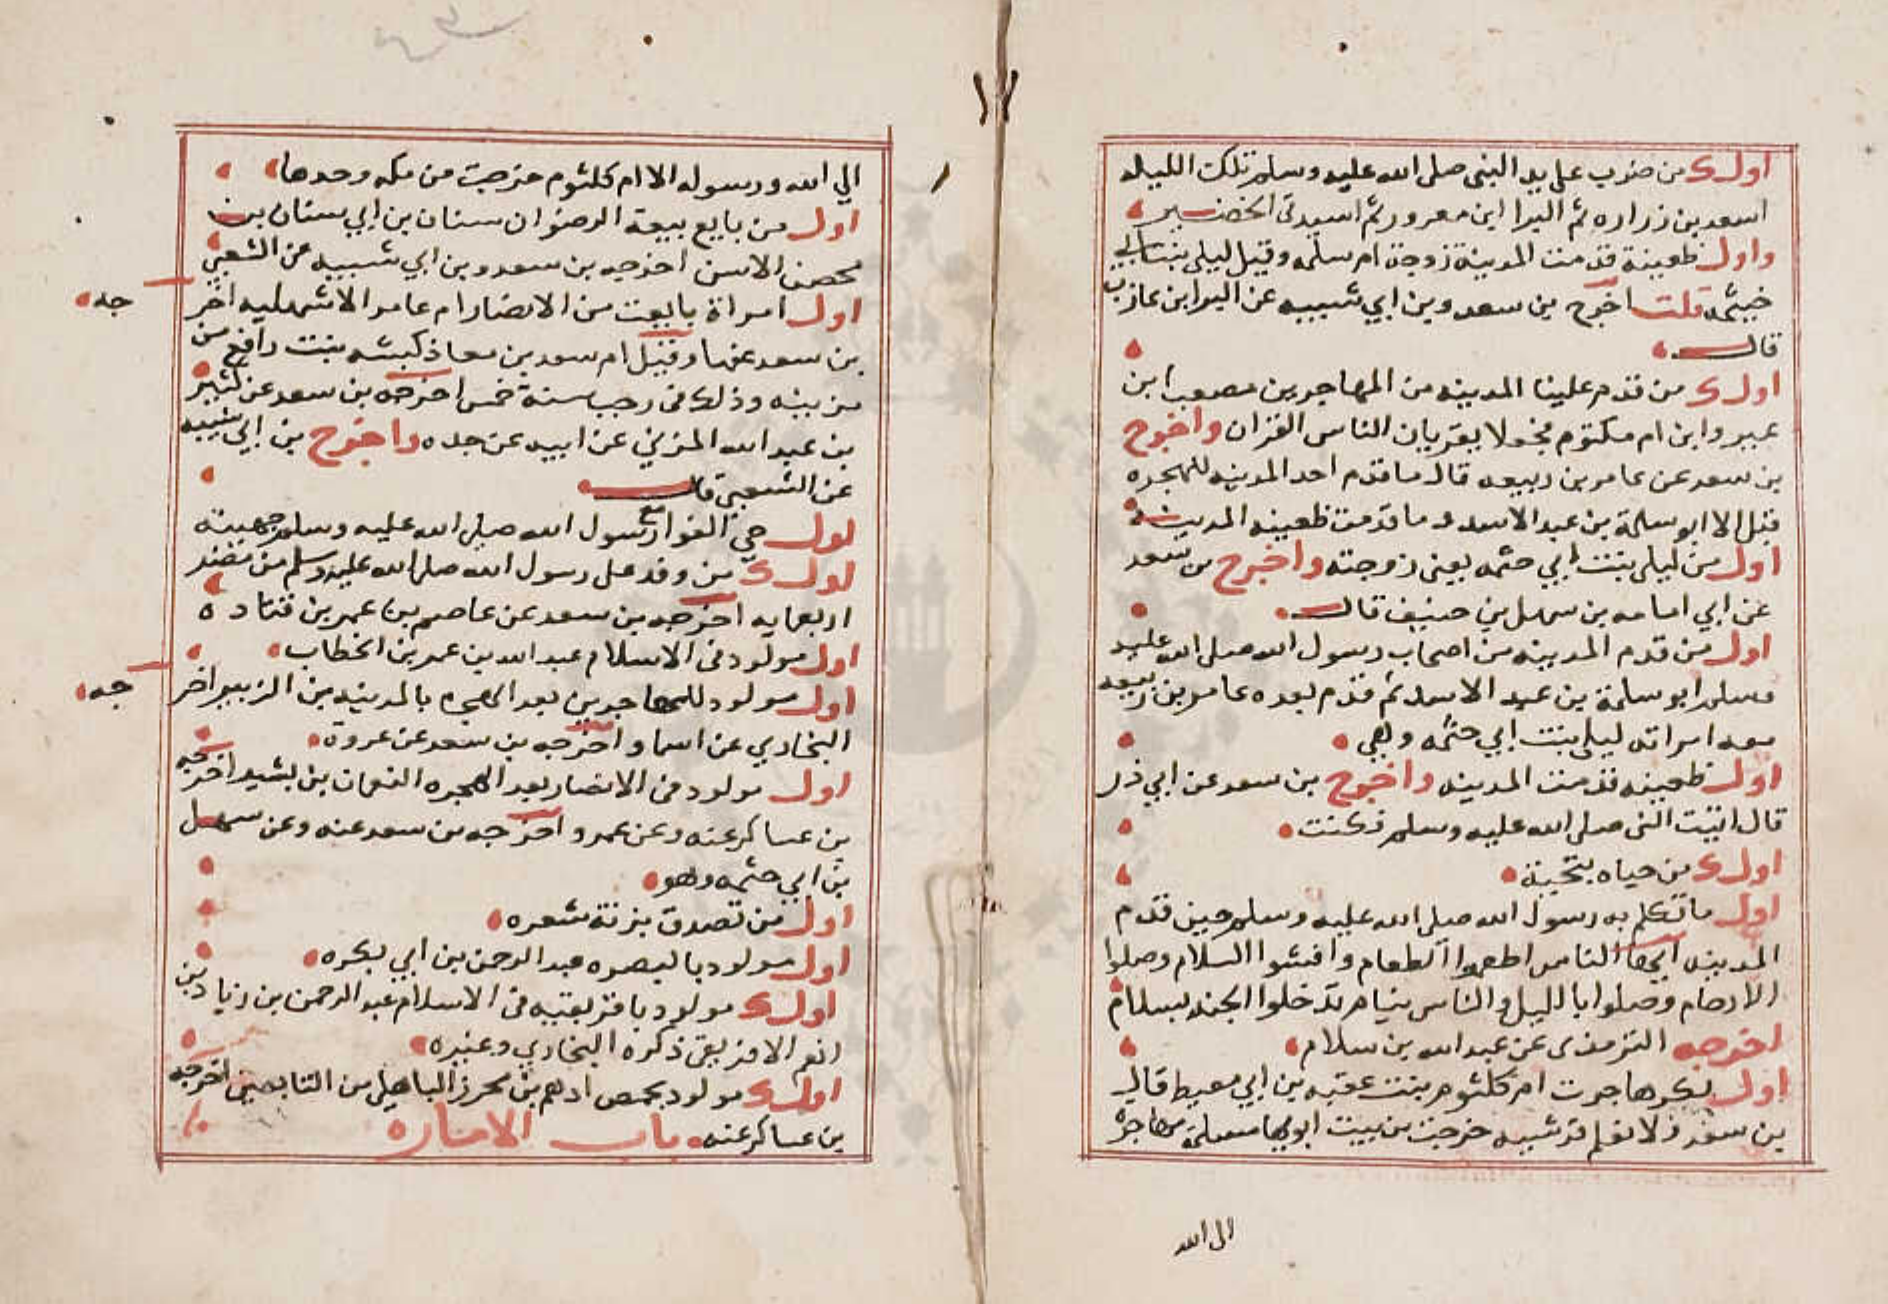 اول من ضرب على يد النبي صلى الله عليه وسلم تلك الليله
اسعد بن زراره ثم البرا ابن معرور ثم اسيد بن الحضير
واول ظعينة قدمت المدينة زوجة ام سلمه وقيل ليلى بنت ابي
خيثمه قلت اخرج بن سعد وبن ابي شيبه عن البرا بن عازب
قال
اول من قدم علينا المدينه من المهاجرين مصعب ابن
عمير وابن ام مكتوم فجعلا يقريان الناس القران واخرج
بن سعد عن عامر بن ربيعه قال ما قدم احد المدينه للهجره
قبل الا ابو سلمة بن عبد الاسد وما قدمت ظعينه المدينه
اول من ليلى بنت ابي حثمه يعنى زوجته واخرج بن سعد
عن ابي امامه بن سهل بن حنيف قال
اول من قدم المدينه من اصحاب رسول الله صلى الله عليه
وسلم ابو سلمة بن عبد الاسد ثم قدم بعده عامر بن ربيعه
معه امراته ليلى بنت ابي حثمه وهي
اول ظعينه قدمت المدينه واخرج بن سعد عن ابي ذر
قال اتيت النبي صلى الله عليه وسلم فكنت
اول من حياه بتحية
اول ما تكلم به رسول الله صلى الله عليه وسلم حين قدم
المدينه ايها الناس اطعموا الطعام وافشوا السلام وصلوا
الارحام وصلوا بالليل والناس نيام تدخلوا الجنه بسلام
اخرجه الترمذى عن عبد الله بن سلام
اول بكر هاجرت ام كلثوم بنت عقبه بن ابي معيط قال
بن سعد ولا نعلم قرشيه خرجت من بيت ابويها مسلمة مهاجرة
الى الله
الي الله ورسوله الا ام كلثوم خرجت من مكه وحدها
اول من بايع بيعة الرضوان سنان بن ابي سنان بن
محصن الاسن اخرجه بن سعد وبن ابي شيبه عن الشعبي
اول امراة بايعت من الانصار ام عامر الاشهليه اخر
جه
بن سعد عنها وقيل ام سعد بن معاذ كبشه بنت رافع من
بن بينه وذلك فى رجب سنة خمس اخرجه بن سعد عن كثير
بن عبد الله المزني عن ابيه عن جده واخرج بن ابي شيبه
عن الشعبي قال
اول حي الفوا مع رسول الله صلى الله عليه وسلم جهينة
اول من وفد على رسول الله صلى الله عليه وسلم من مضر
اربعمايه اخرجه بن سعد عن عاصم بن عمر بن قتاده
اول مولود فى الاسلام عبد الله بن عمر بن الخطاب
اول مولود للمهاجرين بعد الهجره بالمدينه بن الزبير اخر
جه
البخاري عن اسما واخرجه بن سعد عن عروة
اول مولود فى الانصار بعد الهجره النعمان بن بشير اخرجه
بن عساكر عنه وعن عمرو اخرجه بن سعد عنه وعن سهل
بن ابي حثمه وهو
اول من تصدق بزنة شعره
اول مولود بالبصره عبد الرحمن بن ابي بكره
اول مولود بافريقيه فى الاسلام عبد الرحمن بن زياد بن
انعم الافريقى ذكره البخاري وغيره
اول مولود بحمص ادهم بن محرز الباهلى من التابعين اخرجه
بن عساكر عنه باب الامناره